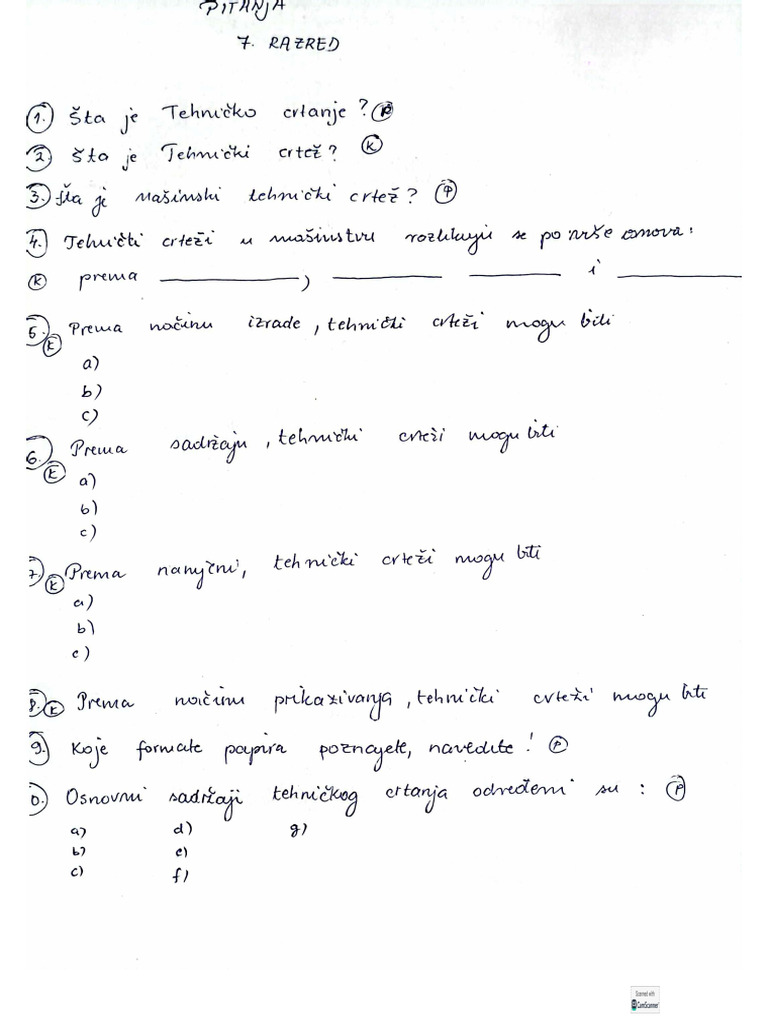 PITANJA
7. RAZRED
1. Šta je Tehničko crtanje? P
2. Šta je Tehnički crtež? K
3. Šta je mašinski tehnički crtež? P
4. Tehnički crteži u mašinstvu razlikuju se po više osnova:
K prema ____________, __________ __________ i ____________
5. Prema načinu izrade, tehnički crteži mogu biti
K
a)
b)
c)
6. Prema sadržaju, tehnički crteži mogu biti
K
a)
b)
c)
7. K Prema namjeni, tehnički crteži mogu biti
a)
b)
c)
8. K Prema načinu prikazivanja, tehnički crteži mogu biti
9. Koje formate papira poznajete, navedite! P
0. Osnovni sadržaji tehničkog crtanja određeni su: P
a) d) g)
b) e)
c) f)
Scanned with
CamScanner